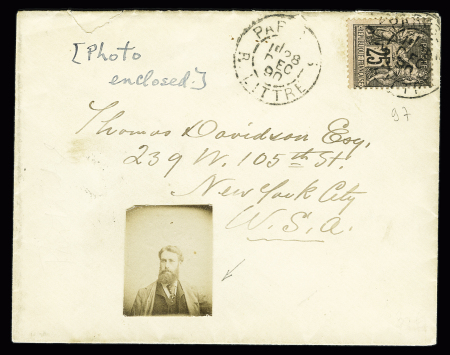 [Photo
enclosed.]
PARIS
28
DEC
90
R. LITTRÉ
25
97
Thomas Davidson Esq.
239 W. 105th St.
New York City
U.S.A.